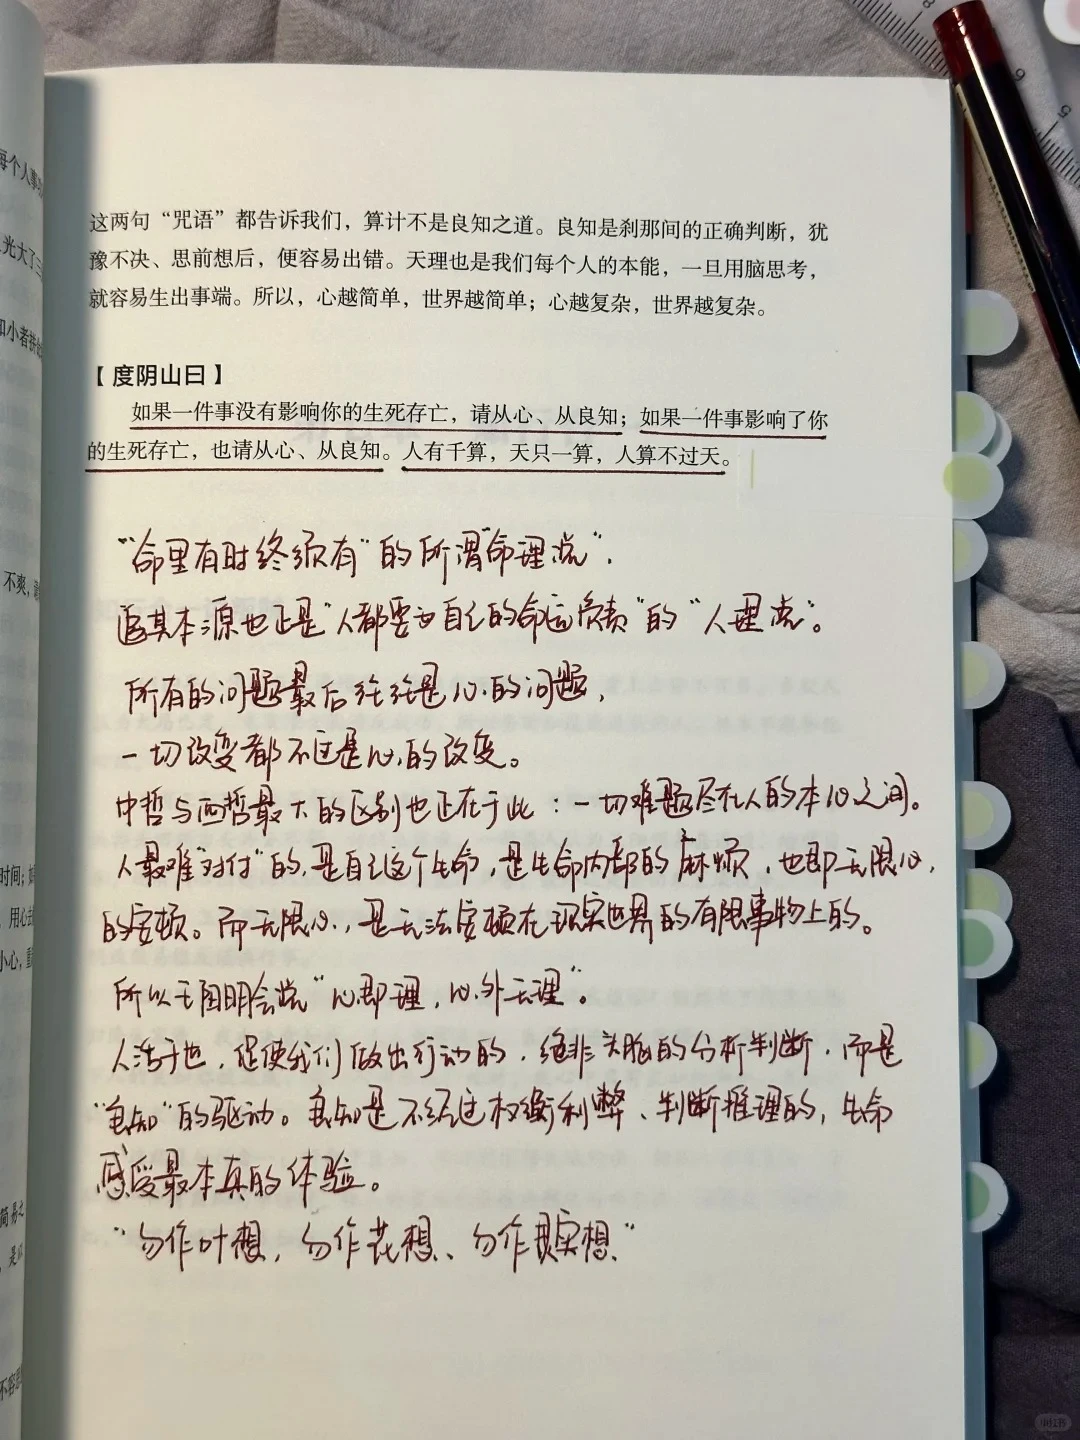 这两句“咒语”都告诉我们，算计不是良知之道。良知是刹那间的正确判断，犹
豫不决、思前想后，便容易出错。天理也是我们每个人的本能，一旦用脑思考，
就容易生出事端。所以，心越简单，世界越简单；心越复杂，世界越复杂。
【度阴山曰】
如果一件事没有影响你的生死存亡，请从心、从良知；如果一件事影响了你
的生死存亡，也请从心、从良知。人有千算，天只一算，人算不过天。
“命里有时终须有”的所谓“命理说”.
追其本源也正是“人都要为自己的命运负责”的“人理说”。
所有的问题最后往往是心的问题，
一切改变都不过是心的改变。
中哲与西哲最大的区别也正在于此：一切难题尽在人的本心之间。
人最难“对付”的，是自己这个生命，是生命内部的麻烦，也即无限心，
的安顿。而无限心，是无法安顿在现实世界的有限事物上的。
所以王阳明会说“心即理，心外无理”。
人活于世，促使我们做出行动的，绝非头脑的分析判断，而是
“良知”的驱动。良知是不经过权衡利弊、判断推理的，生命
感受最本真的体验。
“勿作叶想，勿作花想、勿作果实想”
每个人事
光大了三
不爽，
时间；
用心
小心，
简易之